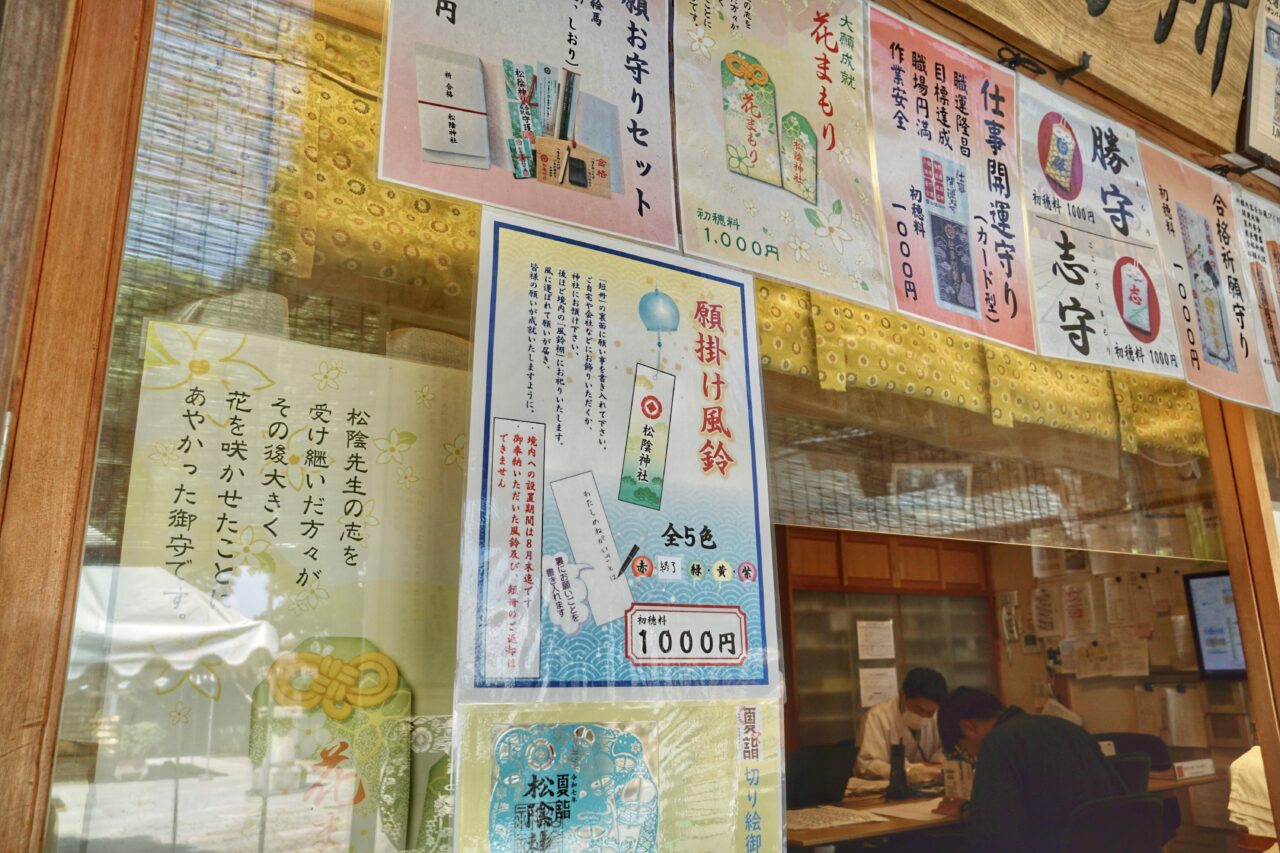 円
願お守りセット
絵馬
しおり)
祈 合格 松陰神社
合格
大願成就
花まもり
花まもり
松陰神社
初穂料
1,000円
仕事開運守り
(カード型)
職運隆昌
目標達成
職場円満
作業安全
初穂料
一〇〇〇円
勝守
初穂料 1000円
志守
こころざしまもり
志
初穂料 1000円
合格祈願守り
初穂料
一〇〇〇円
願掛け風鈴
「短冊」の裏面に願い事を書き入れて下さい。
ご自宅や会社などにお飾りいただくか、
神社にお預け下さい。
後ほど境内の「風鈴棚」にお祀りいたします。
風に運ばれて願いが届き、
皆様の願いが成就いたしますように。
・境内への設置期間は8月末迄です
・御奉納いただいた風鈴及び、短冊のご返却は
できません
松陰神社
わたしのねがいごとは
裏にお願いごとを
書き入れます
全5色
赤・終了・緑・黄・紫
初穂料
1000円
松陰先生の志を
受け継いだ方々が
その後大きく
花を咲かせたことに
あやかった御守です。
花
夏詣 切り絵御
夏詣
松陰神